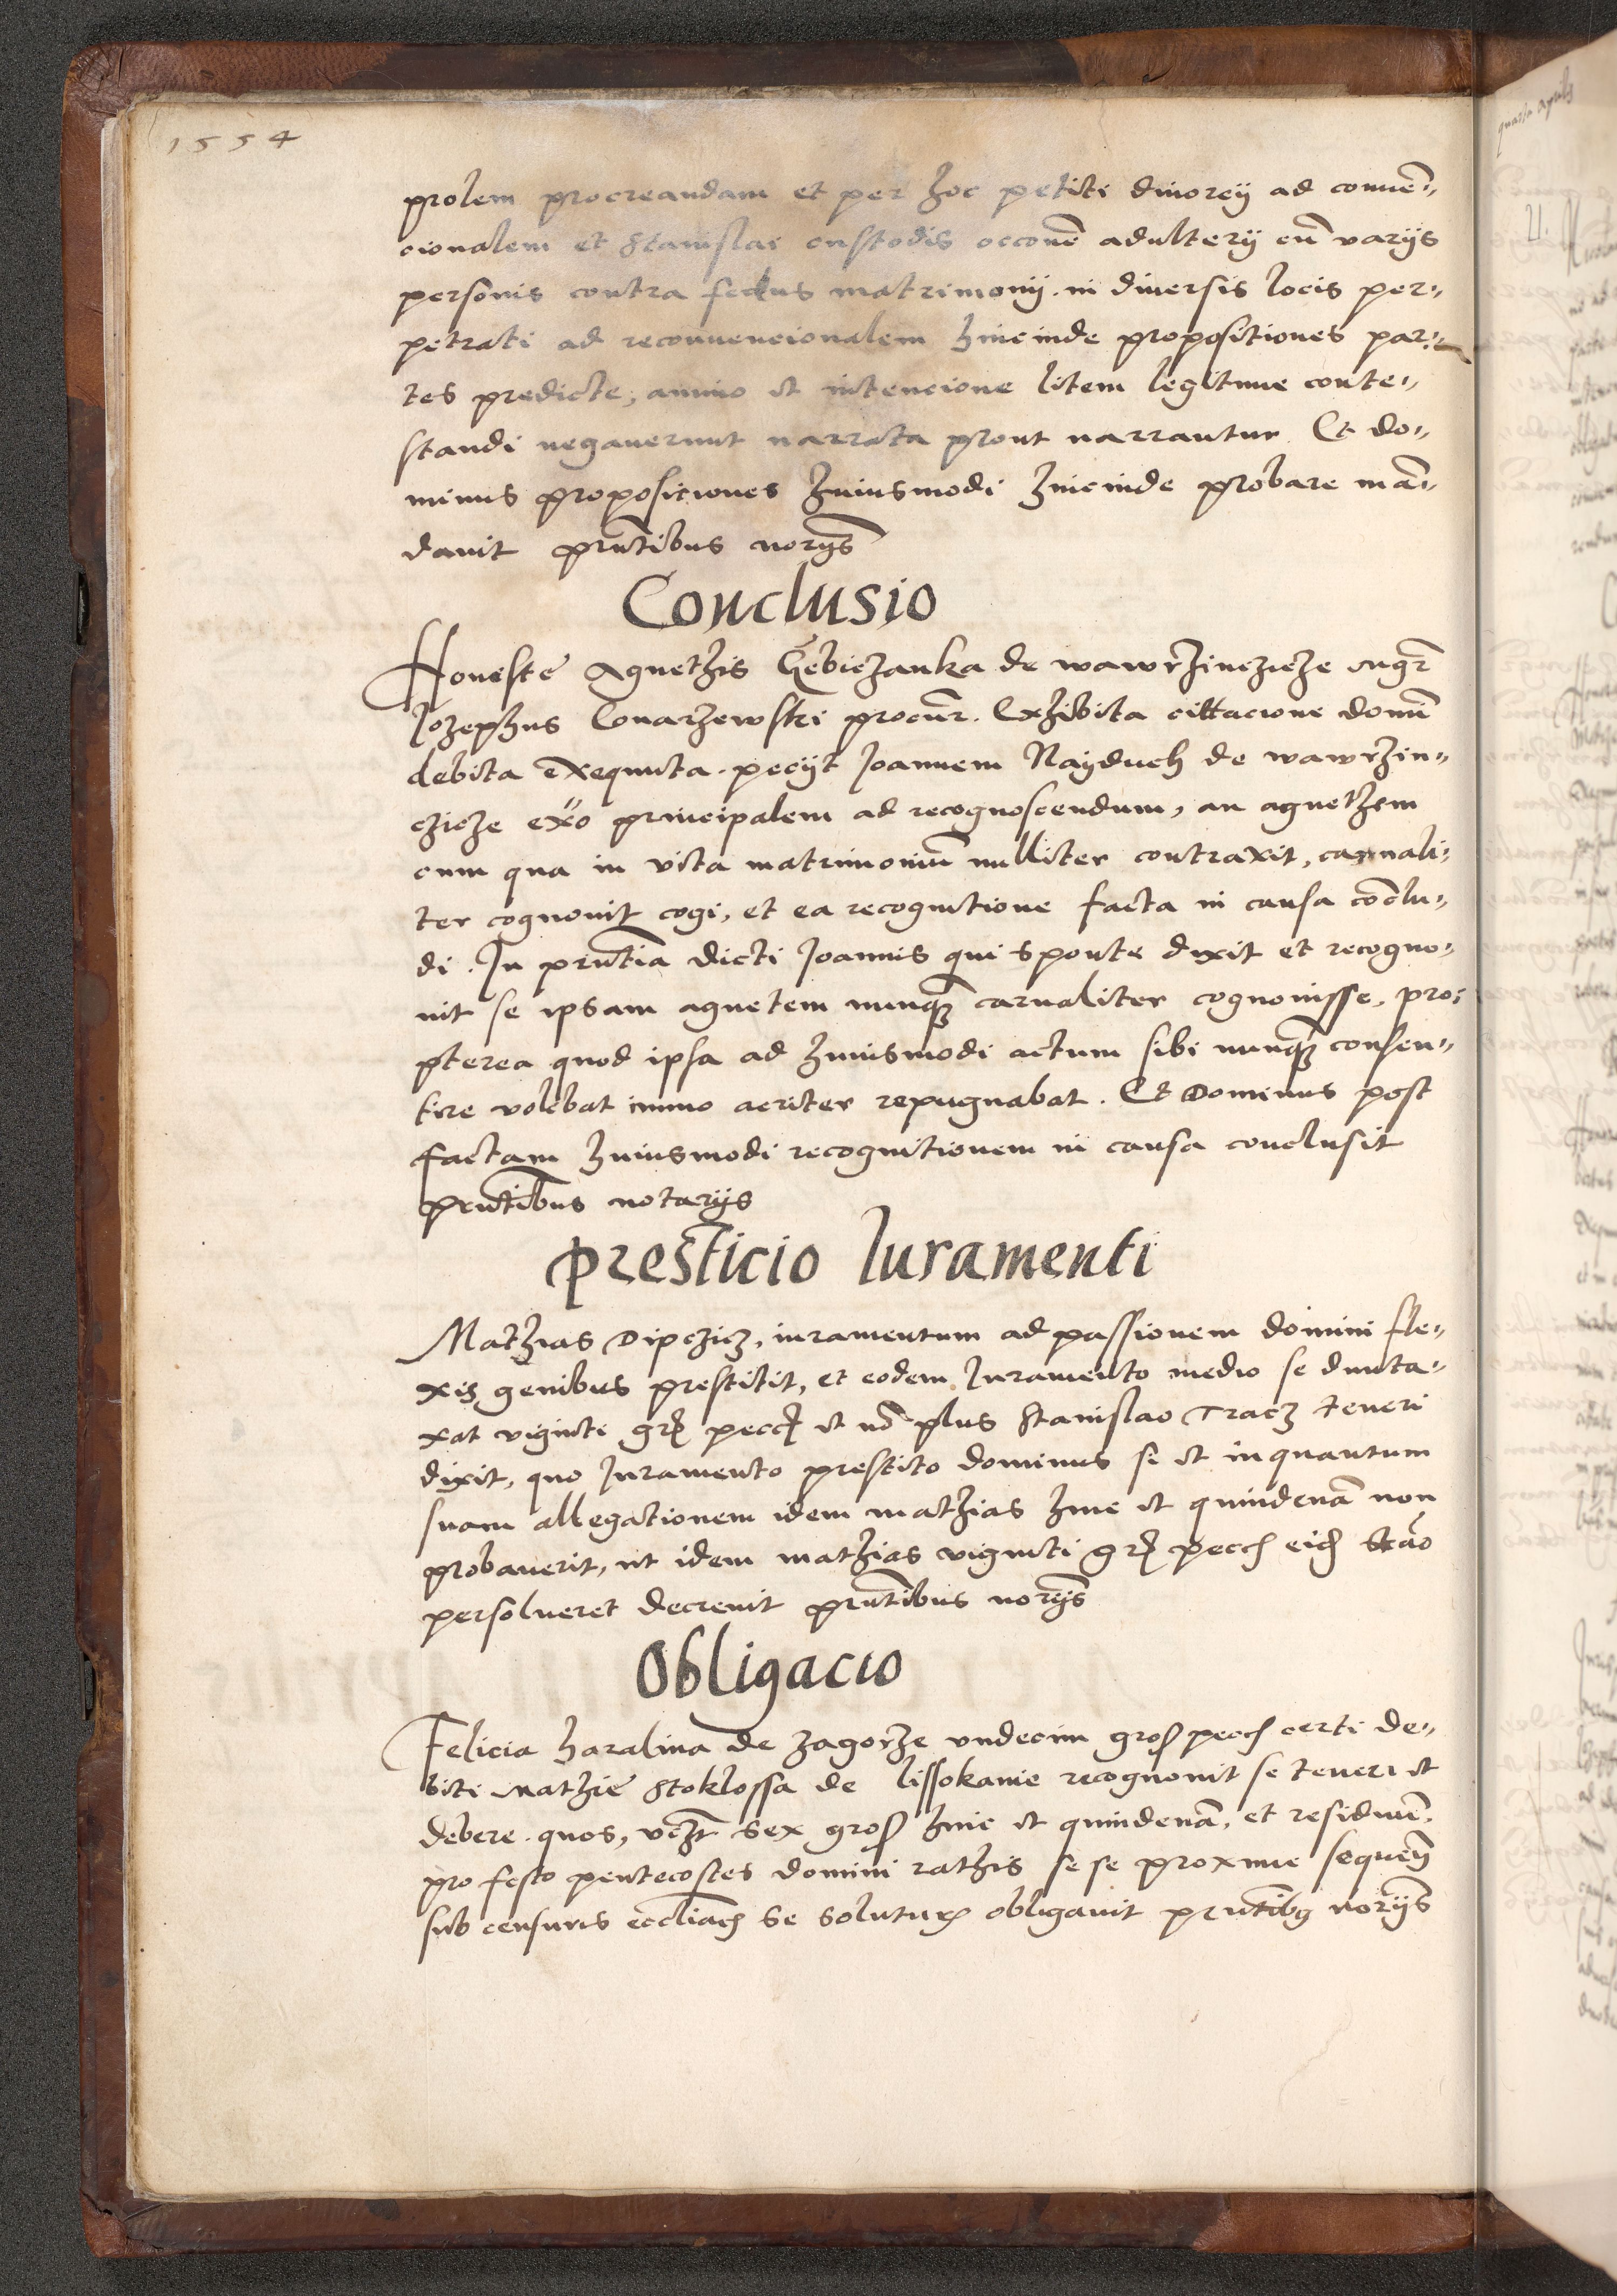 1554
prolem procreandam et per hoc petiti diuorcij ad conuē„
cionalem et Stanislai custodis occōne adulterij cū varijs
personis contra fedus matrimonij in diuersis locis per„
petrati ad reconuencionalem hincinde propositiones par„
tes predicte, animo et intencione litem legitime conte„
standi negauerunt narrata prout narrantur. Et do„
minus propositiones huiusmodi hincinde probare mā„
dauit prntibus norijs
Conclusio
Honeste Agnethis de wawrzinczicze mgr̄
Jozephus Conarzewski procur̄. Exhibita cittacione domi
debita exequuta. pecijt Joannem Nayduch de wawrzin„
czicze exo principalem ad recognoscendum, an agnethem
cum qua in vita matrimoniū nulliter contraxit, carnali„
ter cognouit cogi, et ea recognitione facta in causa cōclu„
di. In prntia dicti Joannis qui sponte dixit et recogno„
uit se ipsam agnetem nunquā carnaliter cognouisse, pro„
pterea quod ipsa ad huiusmodi actum sibi nunquā consen„
tire volebat immo acriter repugnabat. Et Dominus post
factam huiusmodi recognitionem in causa conclusit
prntibus notarijs
Presticio Iuramenti
Mathias Dipczicz, iuramentum ad passionem domini fle„
xis genibus prestitit, et eodem Juramento medio se dunta„
xat viginti gr pecc et nō plus Stanislao Tracz teneri
dixit, quo Juramento prestito dominus si et inquantum
suam allegationem idem mathias hinc et quindenā non
probauerit, ut idem mathias viginti gr pecc eid Stao
persolueret decreuit prntibus norijs
Obligacio
Felicia haralina de zagorze vndecim gros pecc certi de„
biti Mathie Stoklossa de lissokanie recognouit se teneri et
debere. quos, vczt sex gros hinc et quindenā, et residuū
pro festo pentecostes domini rathis se se proxime sequen
sub censuris eccliac se solutur obligauit prntibus norijs